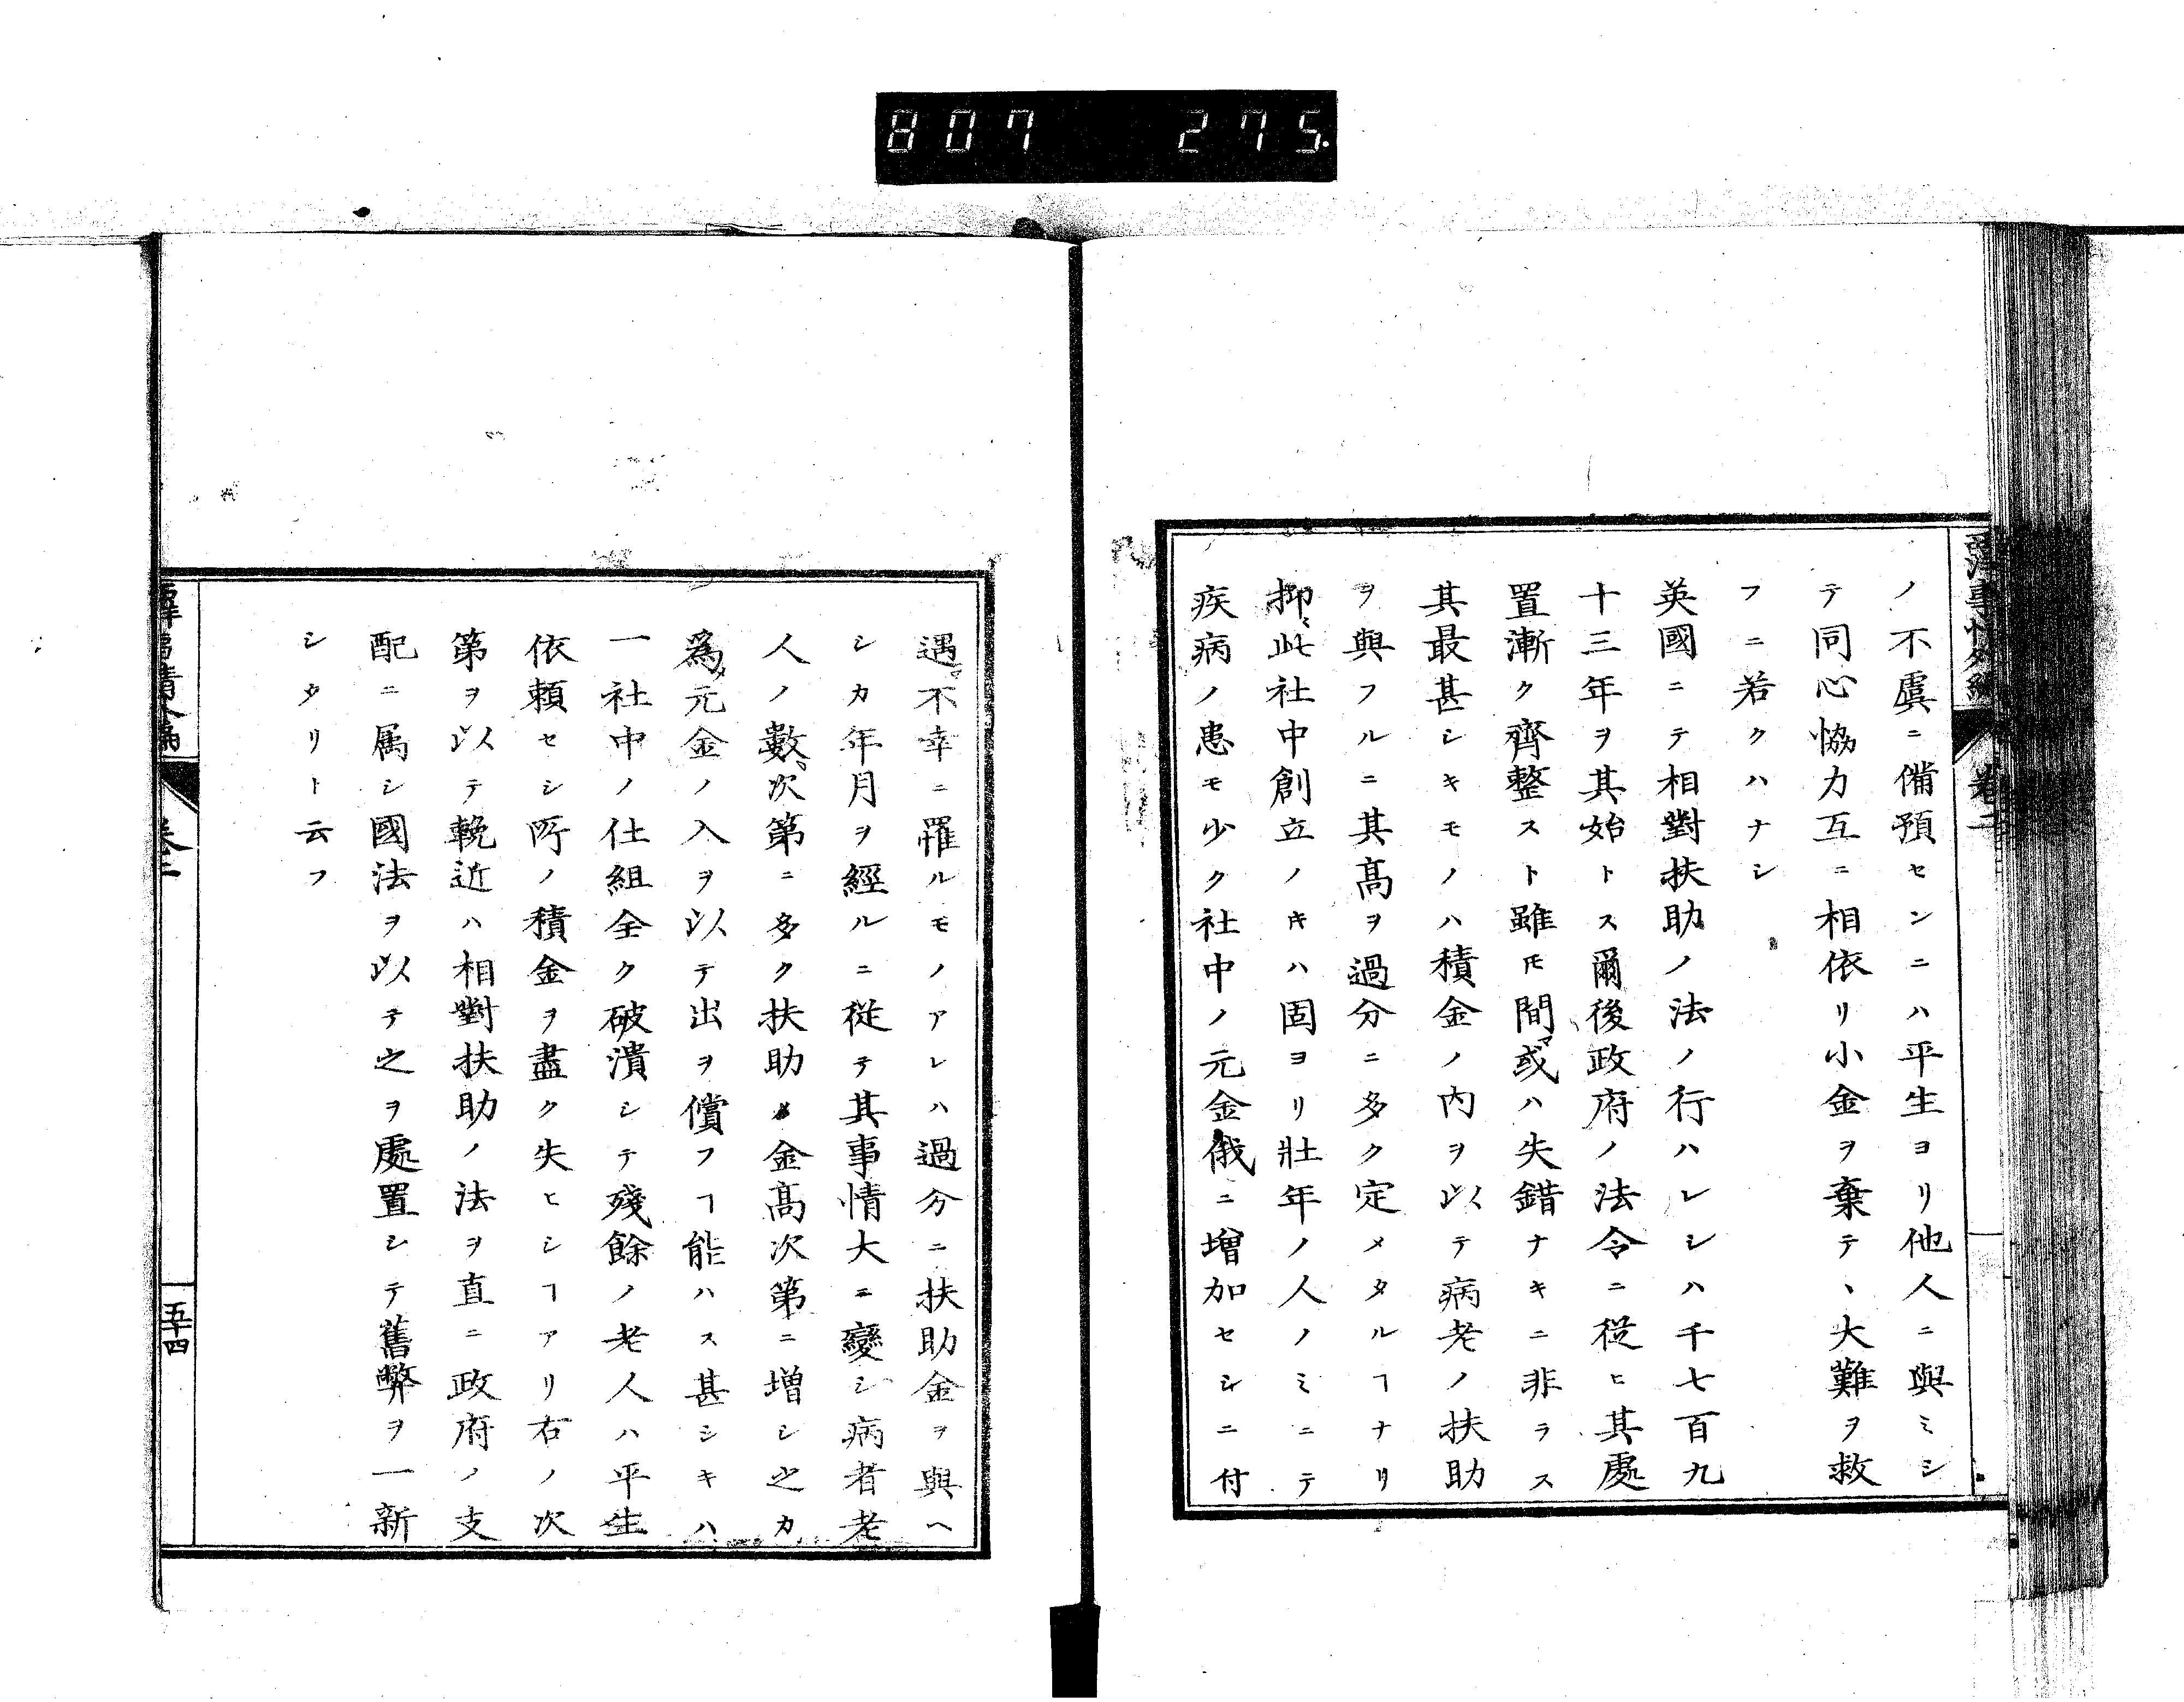 807 275
西洋事情外編 卷二
ノ不虞ニ備預センニハ平生ヨリ他人ニ與ミシ
テ同心恊力互ニ相依リ小金ヲ棄テヽ大難ヲ救
フニ若クハナシ
英國ニテ相對扶助ノ法ノ行ハレシハ千七百九
十三年ヲ其始トス爾後政府ノ法令ニ從ヒ其處
置漸ク齊整スト雖𪜈間〻或ハ失錯ナキニ非ラス
其最甚シキモノハ積金ノ内ヲ以テ病老ノ扶助
ヲ與フルニ其髙ヲ過分ニ多ク定メタルヿナリ
抑〻此社中創立ノキハ固ヨリ壯年ノ人ノミニテ
疾病ノ患モ少ク社中ノ元金俄ニ增加セシニ付
遇〻不幸ニ罹ルモノアレハ過分ニ扶助金ヲ與ヘ
シカ年月ヲ經ルニ從テ其事情大ニ變シ病者老
人ノ數〻次第ニ多ク扶助ノ金髙次第ニ増シ之カ
爲メ元金ノ入ヲ以テ出ヲ償フヿ能ハス甚シキハ
一社中ノ仕組全ク破潰シテ殘餘ノ老人ハ平生
依頼セシ所ノ積金ヲ盡ク失ヒシヿアリ右ノ次
第ヲ以テ輓近ハ相對扶助ノ法ヲ直ニ政府ノ支
配ニ属シ國法ヲ以テ之ヲ處置シテ舊弊ヲ一新
シタリト云フ
卷二
五十四